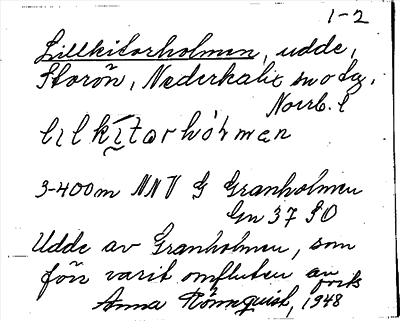 1-2
Lillkitorholmen, udde,
Storön, Nederkalix sn o tg.
Norrb. l
lilkítorhólmen
3-400 m NNV G Granholmen
Gn 37 SO
Udde av Granholmen, som
förr varit omfluten av
forts
Anna Rönnquist, 1948